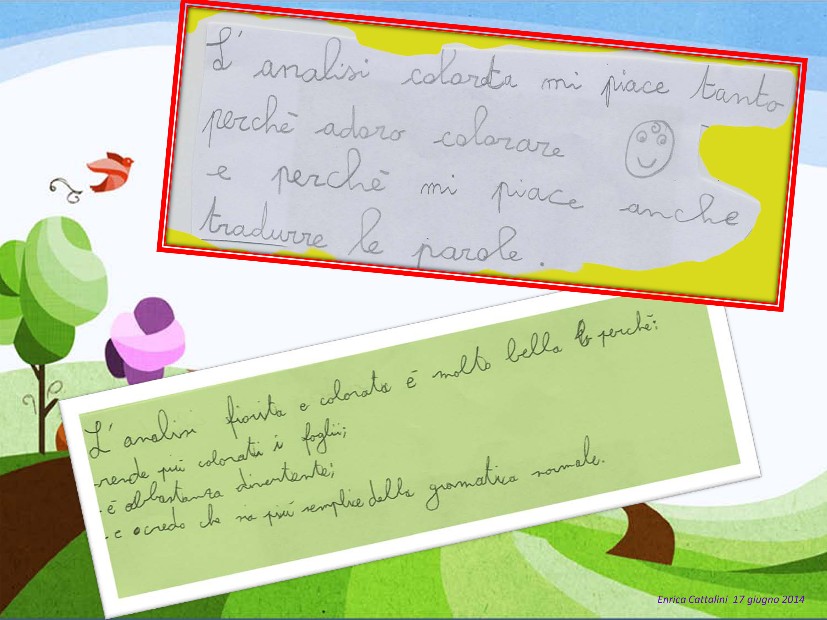 L'analisi colorata mi piace tanto
perchè adoro colorare
e perchè mi piace anche
tradurre le parole.
L'analisi fiorita e colorata è molto bella perchè:
-rende più colorati i foglii;
-è abbastanza divertente;
-e credo che sia più semplice della gramatica normale.
Enrica Cattalini 17 giugno 2014